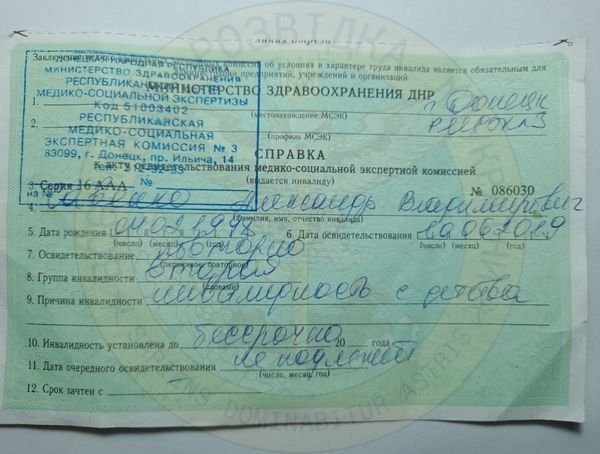 линия отреза
Заключение об условиях и характере труда инвалида является обязательным для
предприятий, учреждений и организаций.
МИНИСТЕРСТВО ЗДРАВООХРАНЕНИЯ ДНР
НАРОДНАЯ РЕСПУБЛИКА
МИНИСТЕРСТВО ЗДРАВООХРАНЕНИЯ
РЕСПУБЛИКАНСКИЙ
МЕДИКО-СОЦИАЛЬНОЙ ЭКСПЕРТИЗЫ
Код 51003402
РЕСПУБЛИКАНСКАЯ
МЕДИКО-СОЦИАЛЬНАЯ
ЭКСПЕРТНАЯ КОМИССИЯ № 3
83099, г. Донецк, пр. Ильича, 14
на № №
1. г. Донецк
(местонахождение МСЭК)
2.
(профиль МСЭК)
СПРАВКА
к акту освидетельствования медико-социальной экспертной комиссией
(выдается инвалиду)
3. Серия 16 ААА № 086030
4. Александр Владимирович
(фамилия, имя, отчество инвалида)
5. Дата рождения 6. Дата освидетельствования
(число) (месяц) (год) (число) (месяц) (год)
7. Освидетельствование повторно
8. Группа инвалидности вторая
(словами)
9. Причина инвалидности инвалидность с детства
10. Инвалидность установлена до бессрочно 20 года
11. Дата очередного освидетельствования не подлежит
(число, месяц, год)
12. Срок зачтен с
РОЗВІДКА
DOMINABITUR ASTRIS